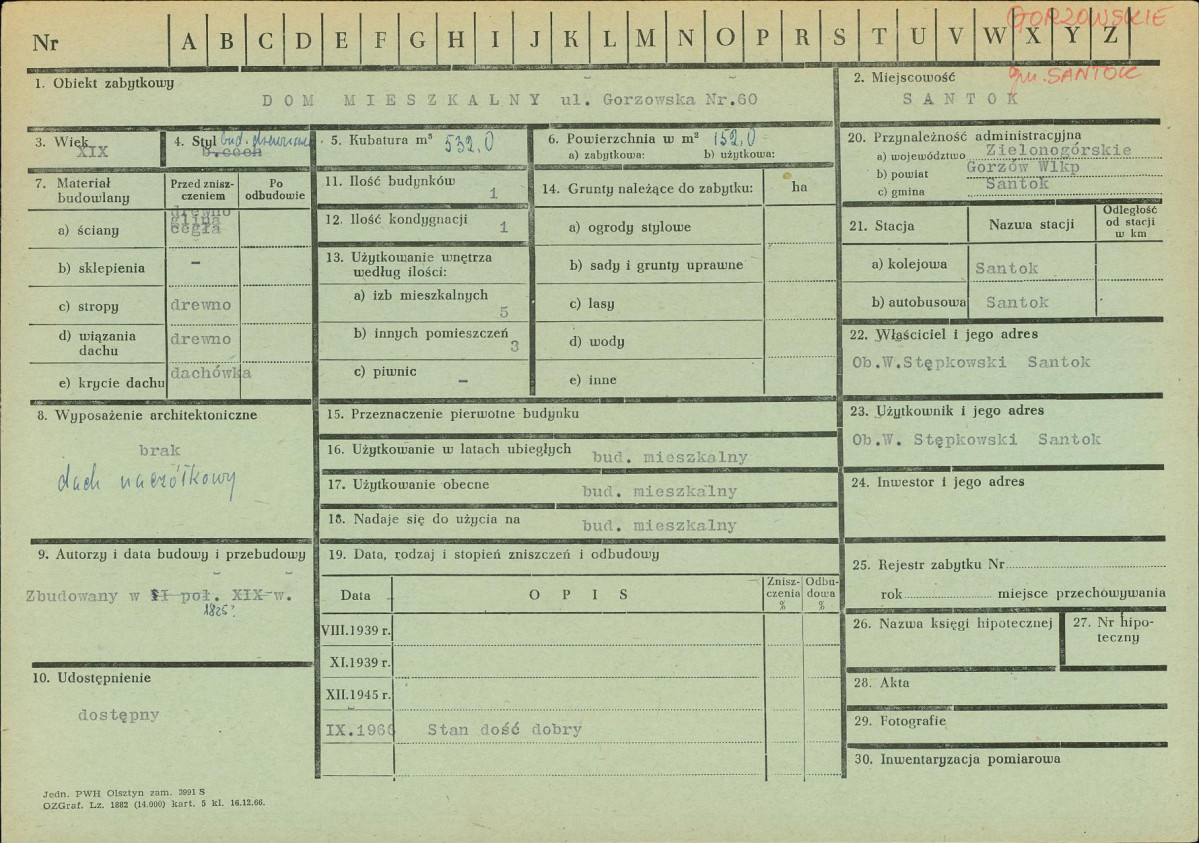 GORZOWSKIE
gm. SANTOK
Nr A B C D E F G H I J K L M N O P R S T U V W X Y Z
1. Obiekt zabytkowy
DOM MIESZKALNY ul. Gorzowska Nr.60
2. Miejscowość
SANTOK
3. Wiek
XIX
4. Styl bud. drewniane
b.cech
5. Kubatura m³ 532,0
6. Powierzchnia w m² 152,0
a) zabytkowa: b) użytkowa:
20. Przynależność administracyjna
a) województwo Zielonogórskie
b) powiat Gorzów Wlkp
c) gmina Santok
7. Materiał budowlany
Przed zniszczeniem
Po odbudowie
a) ściany
drewno
glina
cegła
b) sklepienia –
c) stropy drewno
d) wiązania dachu drewno
e) krycie dachu dachówka
11. Ilość budynków 1
12. Ilość kondygnacji 1
13. Użytkowanie wnętrza
według ilości:
a) izb mieszkalnych 5
b) innych pomieszczeń 3
c) piwnic –
14. Grunty należące do zabytku: ha
a) ogrody stylowe
b) sady i grunty uprawne
c) lasy
d) wody
e) inne
21. Stacja
Nazwa stacji
Odległość
od stacji
w km
a) kolejowa Santok
b) autobusowa Santok
22. Właściciel i jego adres
Ob.W.Stępkowski Santok
8. Wyposażenie architektoniczne
brak
dach naczółkowy
15. Przeznaczenie pierwotne budynku
16. Użytkowanie w latach ubiegłych bud. mieszkalny
17. Użytkowanie obecne bud. mieszkalny
18. Nadaje się do użycia na bud. mieszkalny
23. Użytkownik i jego adres
Ob.W. Stępkowski Santok
24. Inwestor i jego adres
9. Autorzy i data budowy i przebudowy
Zbudowany w II poł. XIX w.
1825?
10. Udostępnienie
dostępny
19. Data, rodzaj i stopień zniszczeń i odbudowy
Data
OPIS
Zniszczenia
%
Odbudowa
%
VIII.1939 r.
XI.1939 r.
XII.1945 r.
IX.1966 Stan dość dobry
25. Rejestr zabytku Nr
rok miejsce przechowywania
26. Nazwa księgi hipotecznej
27. Nr hipoteczny
28. Akta
29. Fotografie
30. Inwentaryzacja pomiarowa
Jedn. PWH Olsztyn zam. 3991 S
OZGraf. Lz. 1882 (14.000) kart. 5 kl. 16.12.66.